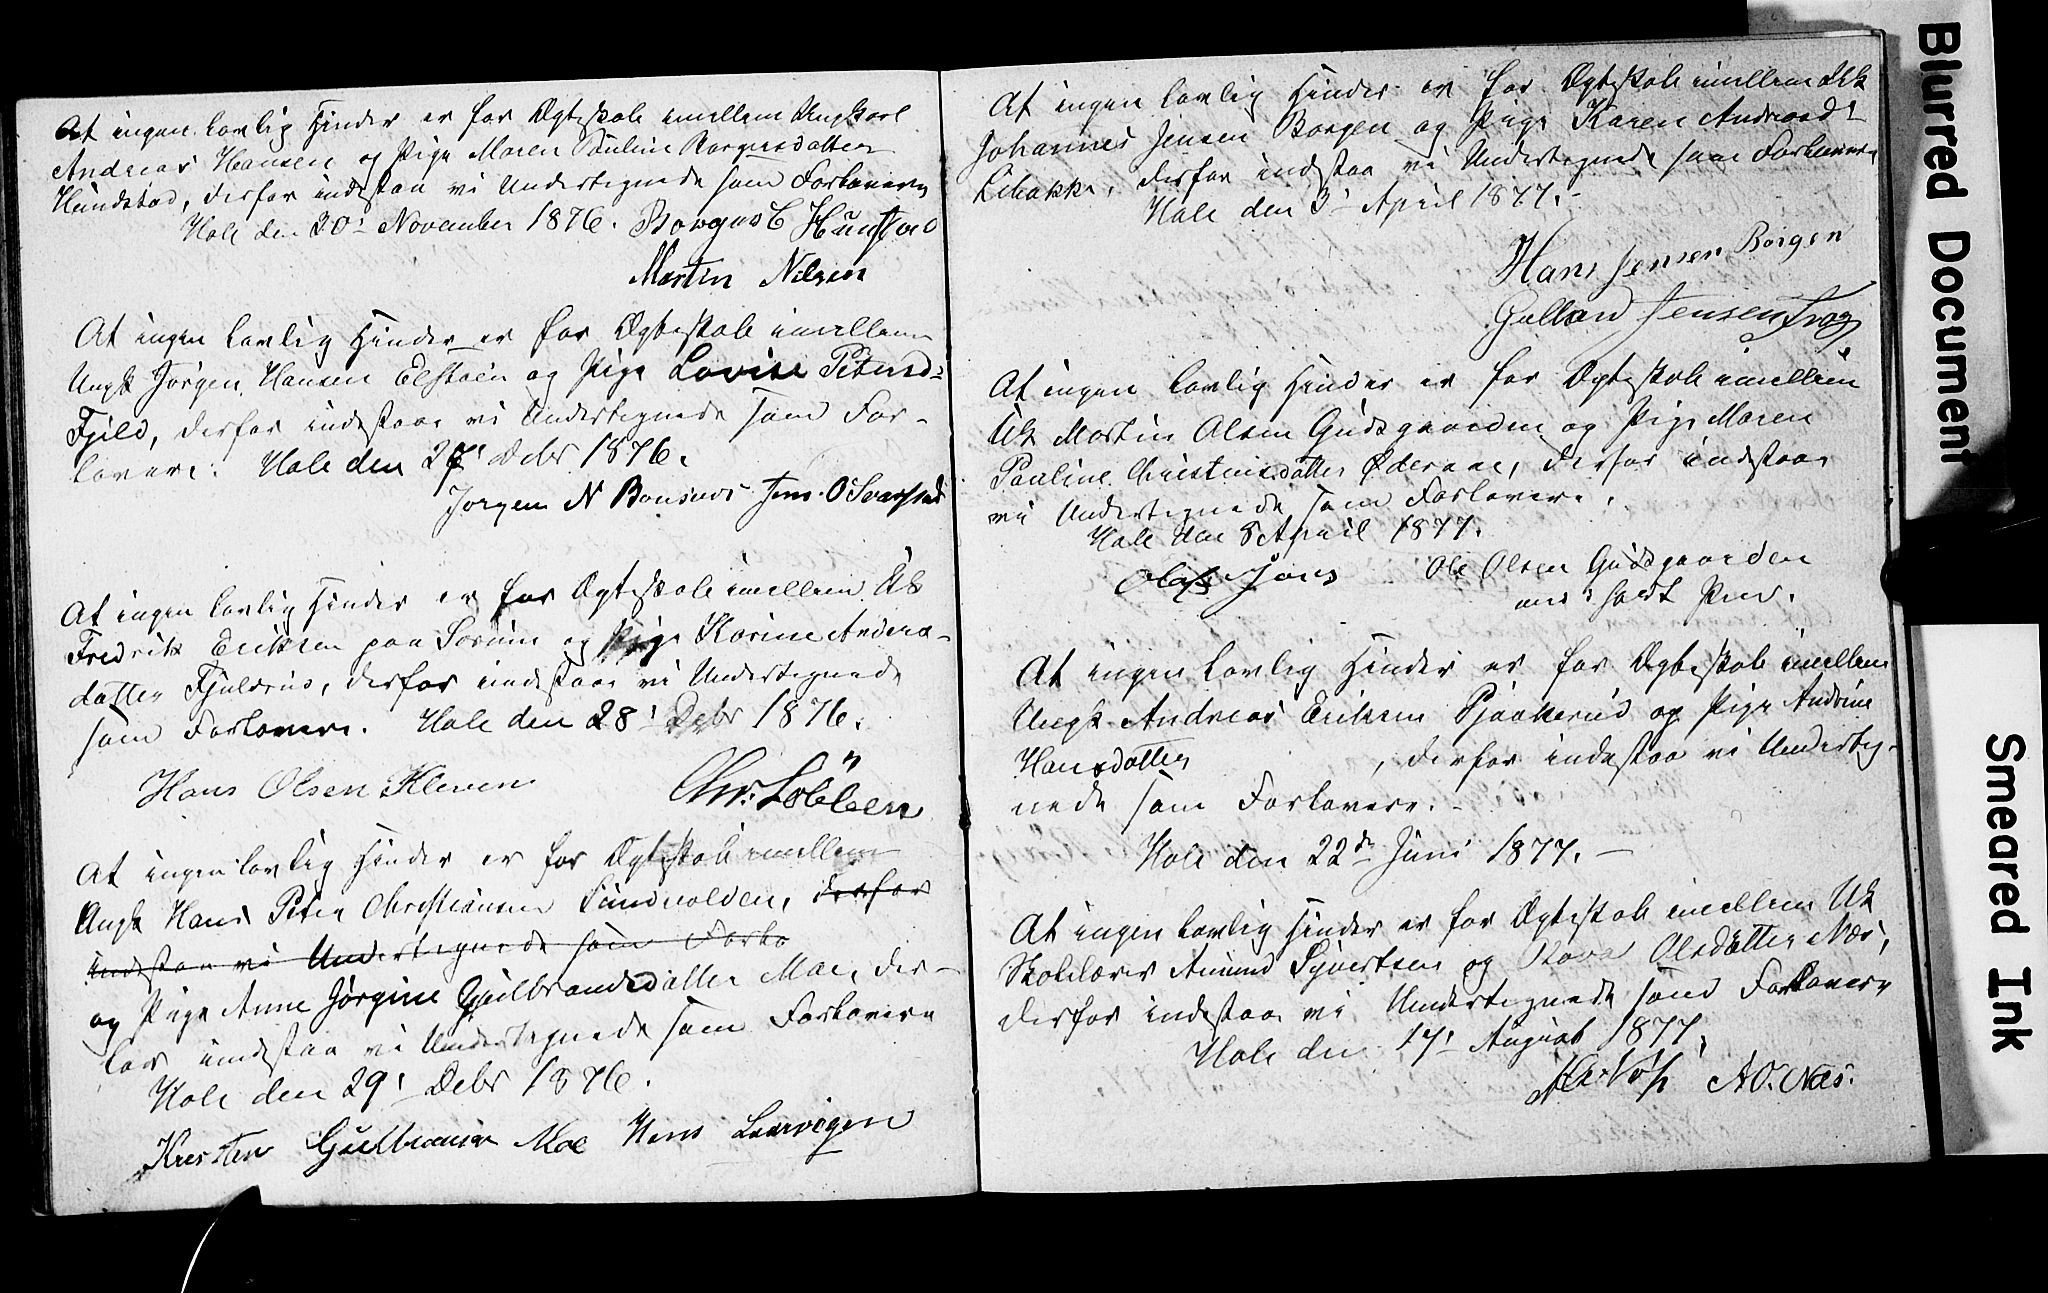 At ingen lovlig Hinder er for Ægteskab imellem Ungkarl
Andreas Hansen og Pige Maren Pauline Borgersdatter
Hundstad, derfor indestaa vi Undertegnede som Forlovere
Hole den 30' November 1876. Borgus C Hunstad
Martin Nilsen
At ingen lovlig Hinder er for Ægteskab imellem
Ungk Jørgen Hansen Elstøen og Pige Lovise Petersd:
Fjeld, derfor indestaa vi Undertegnede som For-
lovere. Hole den 27' Debr 1876.
Jorgen N Bonsnes Jens O Svarstad
At ingen lovlig Hinder er for Ægteskab imellem Uk
Fredrik Eriksen paa Sørum og Pige Karine Anders-
datter Fjulsrud, derfor indestaa vi Undertegnede
som Forlovere. Hole den 28' Debr 1876.
Hans Olsen Kleven Chr. Løbben
At ingen lovlig Hinder er for Ægteskab imellem
Ungk Hans Peter Christiansen Sundvolden, derfor
indestaa vi Undertegnede som Forlo
og Pige Anne Jørgine Gulbrandsdatter Moe, der-
for indestaa vi Undertegnede som Forlovere
Hole den 29' Debr 1876.
Kresten Gulbransen Moe Hans Leervigen
At ingen lovlig Hinder er for Ægteskab imellem Ukk
Johannes Jensen Borgen og Pige Karen Andreasd:
Libakke, derfor indestaa vi Undertegnede som Forlovere
Hole den 3' April 1877.-
Hans Jensen Borgen
Gulbran Jensen
At ingen lovlig Hinder er for Ægteskab imellem
Uk Martin Olsen Gudsgaarden og Pige Maren
Pauline Christensdatter Øderaae, derfor indestaa
vi Undertegnede som Forlovere.
Hole den 8 April 1877.
Ole Olsen Gudsgaarden
med ført Pen.
At ingen lovlig Hinder er for Ægteskab imellem
Ungk. Andreas Eriksen Pjaakerud og Pige Andrine
Hansdatter , derfor indestaa vi Underteg-
nede som Forlovere.-
Hole den 22de Juni 1877.-
At ingen lovlig Hinder er for Ægteskab imellem Uk
Skolelærer Amund Syvertsen og Olsdatter Næs,
derfor indestaa vi Undertegnede som Forlovere
Hole den 17' August 1877.
A O. Næs.
Blurred Document
Smeared Ink